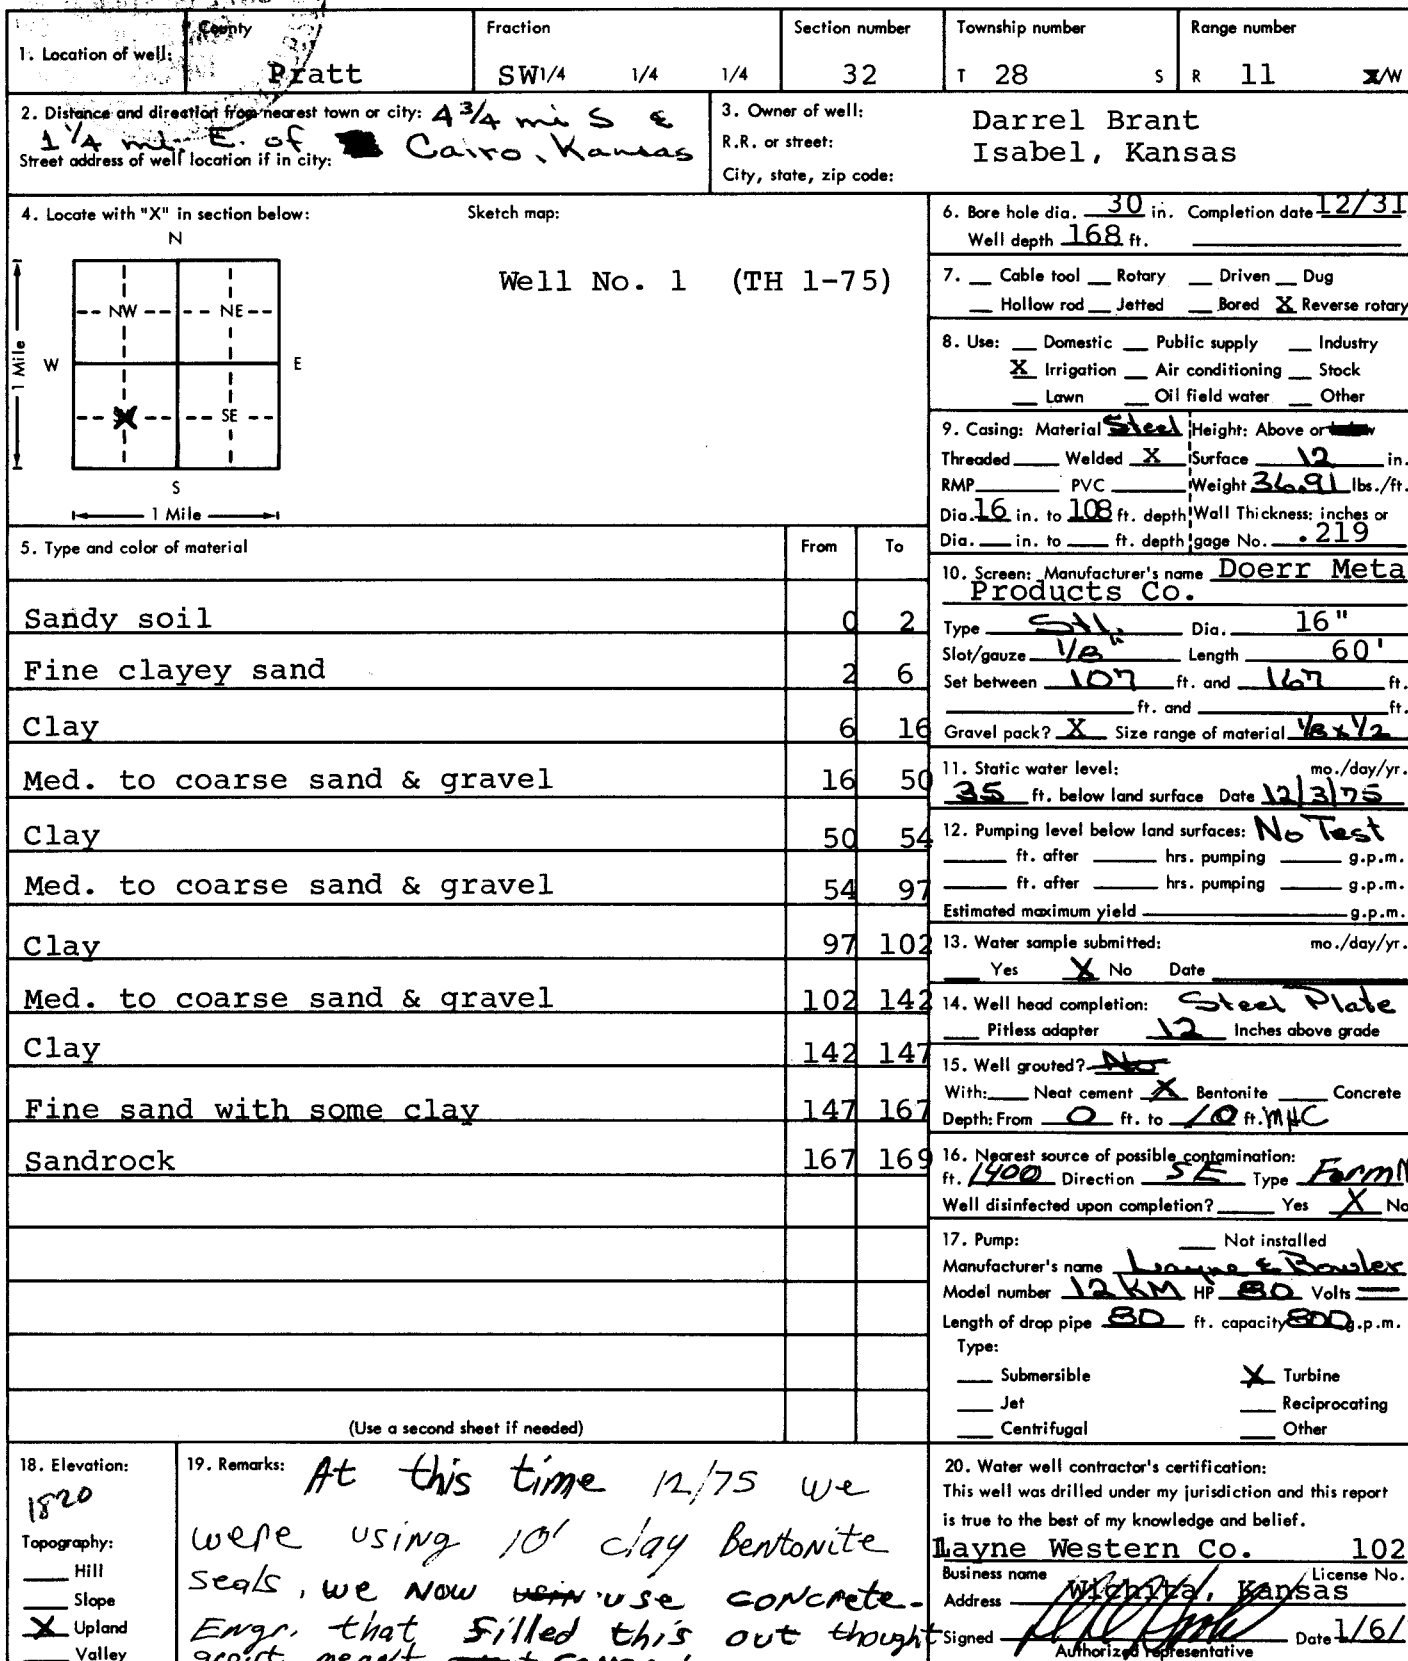 1. Location of well:
County
Pratt
Fraction
SW1/4 1/4 1/4
Section number
32
Township number
T 28 S
Range number
R 11 /W
2. Distance and direction from nearest town or city: 4 3/4 mi S &
1 1/4 mi. E. of Cairo, Kansas
Street address of well location if in city:
3. Owner of well:
R.R. or street:
City, state, zip code:
Darrel Brant
Isabel, Kansas
4. Locate with "X" in section below:
Sketch map:
N
NW NE
W E
1 Mile
X SE
S
1 Mile
Well No. 1 (TH 1-75)
5. Type and color of material From To
Sandy soil 0 2
Fine clayey sand 2 6
Clay 6 16
Med. to coarse sand & gravel 16 50
Clay 50 54
Med. to coarse sand & gravel 54 97
Clay 97 102
Med. to coarse sand & gravel 102 142
Clay 142 147
Fine sand with some clay 147 167
Sandrock 167 169
(Use a second sheet if needed)
6. Bore hole dia. 30 in. Completion date 12/31
Well depth 168 ft.
7. Cable tool Rotary Driven Dug
Hollow rod Jetted Bored X Reverse rotary
8. Use: Domestic Public supply Industry
X Irrigation Air conditioning Stock
Lawn Oil field water Other
9. Casing: Material Steel Height: Above or
Threaded Welded X Surface 12 in.
RMP PVC Weight 36.91 lbs./ft.
Dia. 16 in. to 108 ft. depth Wall Thickness: inches or
Dia. in. to ft. depth gage No. .219
10. Screen: Manufacturer's name Doerr Meta
Products Co.
Type Stl. Dia. 16"
Slot/gauze 1/8" Length 60'
Set between 107 ft. and 167 ft.
ft. and ft.
Gravel pack? X Size range of material 1/8 x 1/2
11. Static water level: mo./day/yr.
35 ft. below land surface Date 12/3/75
12. Pumping level below land surfaces: No Test
ft. after hrs. pumping g.p.m.
ft. after hrs. pumping g.p.m.
Estimated maximum yield g.p.m.
13. Water sample submitted: mo./day/yr.
Yes X No Date
14. Well head completion: Steel Plate
Pitless adapter 12 Inches above grade
15. Well grouted? No
With: Neat cement X Bentonite Concrete
Depth: From 0 ft. to 10 ft. MHC
16. Nearest source of possible contamination:
ft. 1400 Direction SE Type Farm
Well disinfected upon completion? Yes X No
17. Pump: Not installed
Manufacturer's name Layne & Bowler
Model number 12 KM HP 80 Volts —
Length of drop pipe 80 ft. capacity 800 g.p.m.
Type:
Submersible X Turbine
Jet Reciprocating
Centrifugal Other
18. Elevation:
1820
Topography:
Hill
Slope
X Upland
Valley
19. Remarks: At this time 12/75 we
were using 10' clay Bentonite
seals, we now use concrete.
Engr. that filled this out thought
grout meant
20. Water well contractor's certification:
This well was drilled under my jurisdiction and this report
is true to the best of my knowledge and belief.
Layne Western Co. 102
Business name License No.
Address Wichita, Kansas
Signed Date 1/6/
Authorized representative